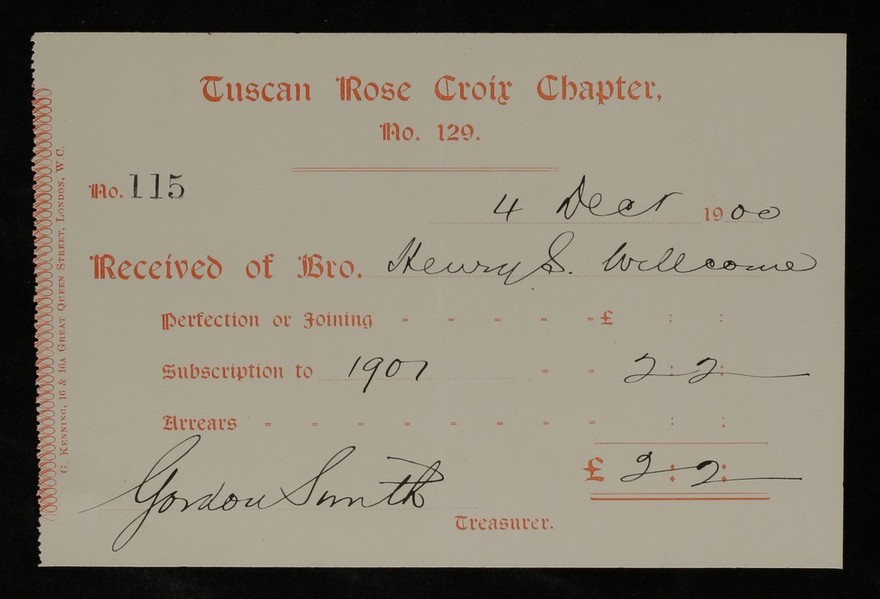 Tuscan Rose Croix Chapter,
No. 129.
No. 115
4 Decr 1900
Received of Bro. Henry S. Wellcome
Perfection or Joining - - - - - £ : :
Subscription to 1901 - - 2 : 2 : —
Arrears - - - - - - - - : :
£ 2 : 2 : —
Gordon Smith
Treasurer.
G. Kenning, 16 & 16A Great Queen Street, London, W.C.